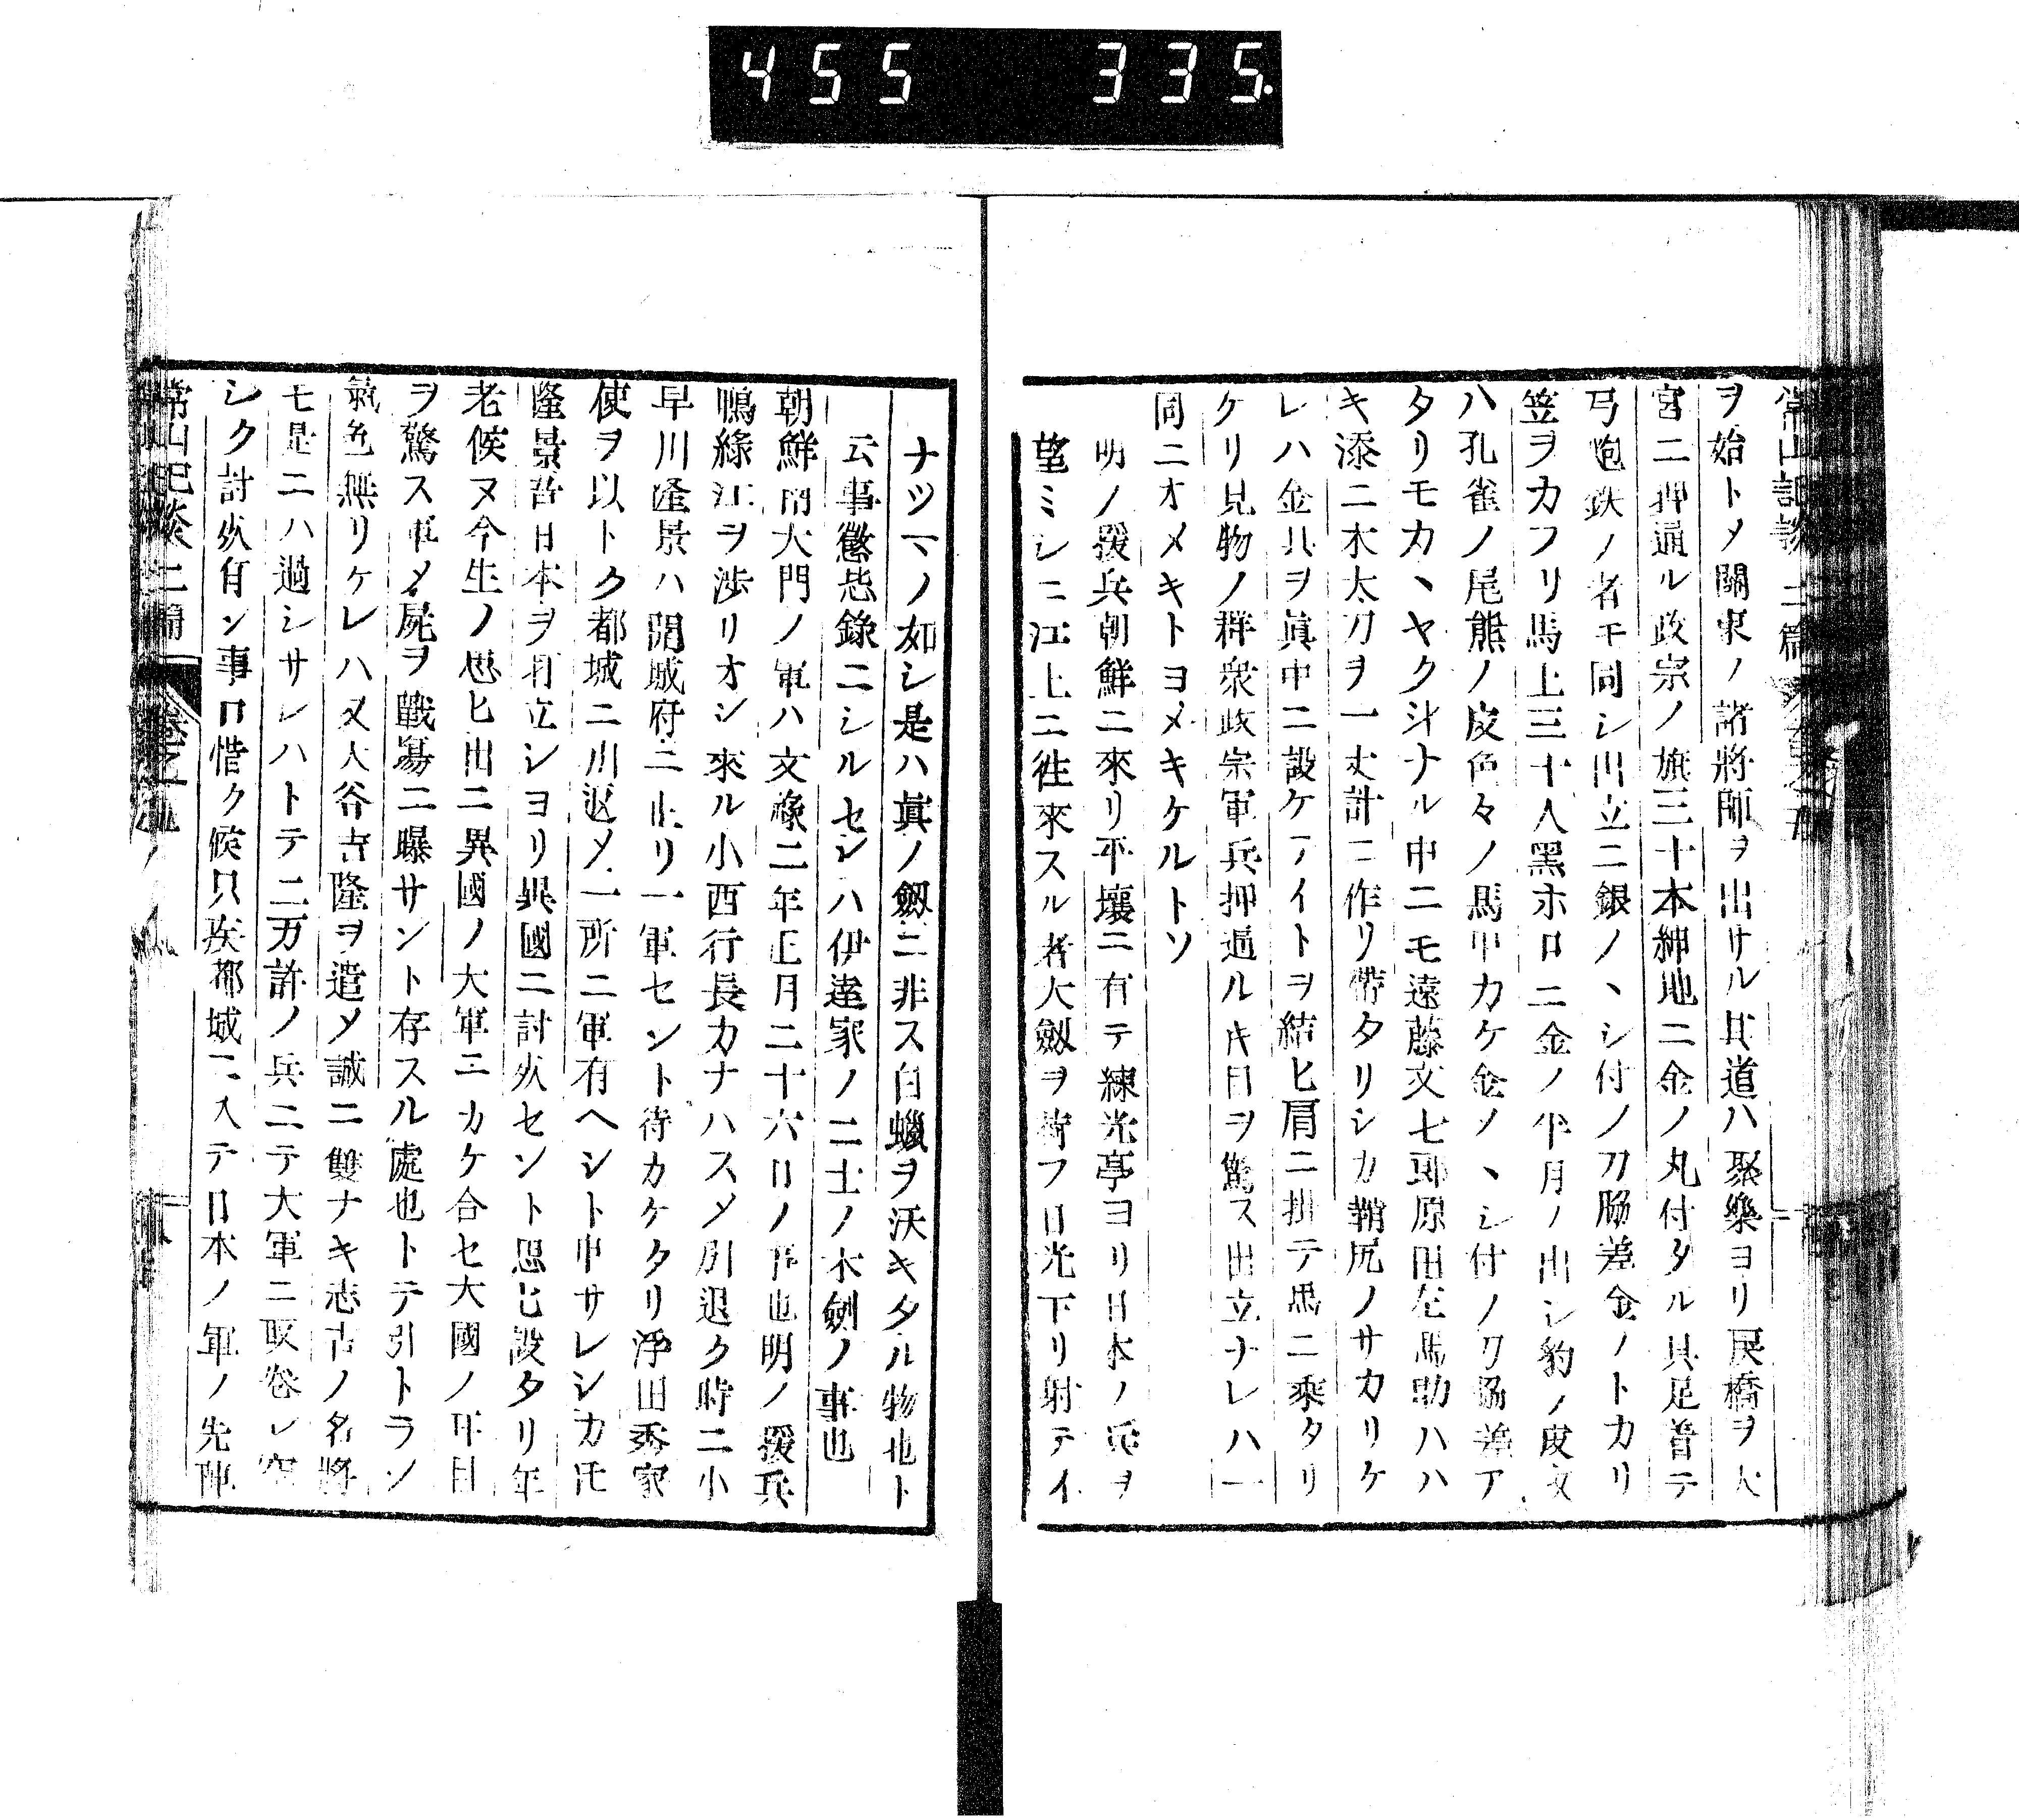 455 335
常山記談 二篇
ヲ始トメ關東ノ諸將師ヲ出サル其道ハ聚樂ヨリ戻橋ヲ大
宮ニ押通ル政宗ノ旗三十本紺地ニ金ノ丸付タル具足著テ
弓鉄ノ者モ同シ出立ニ銀ノヽシ付ノ刀脇差金ノトカリ
笠ヲカフリ馬上三十人黑ホロニ金ノ半月ノ出シ豹ノ皮又
ハ孔雀ノ尾熊ノ皮色々ノ馬甲カケ金ノヽシ付ノ刀脇差ア
タリモカヽヤク斗ナル中ニモ遠藤文七郎原田左馬助ハハ
キ添ニ木太刀ヲ一丈計ニ作リ帶タリシカ鞘尻ノサカリケ
レハ金具ヲ眞中ニ設ケテイトヲ結ヒ肩ニ掛テ馬ニ乘タリ
ケリ見物ノ群衆政宗軍兵押通ルキ目ヲ驚ス出立ナレハ一
同ニオメキトヨメキケルトソ
明ノ援兵朝鮮ニ來リ平壤ニ有テ練光亭ヨリ日本ノ兵ヲ
望ミシニ江上ニ往來スル者大劔ヲ荷フ日光下リ射テイ
ナツマノ如シ是ハ眞ノ劔ニ非ス白蠟ヲ沃キタル物也ト
云事懲毖錄ニシルセシハ伊達家ノ二士ノ木劍ノ事也
朝鮮南大門ノ軍ハ文祿二年正月二十六日ノ事也明ノ援兵
鴨綠江ヲ渉リオシ來ル小西行長カナハスメ引退ク時ニ小
早川隆景ハ開城府ニ止リ一軍セント待カケタリ浮田秀家
使ヲ以トク都城ニ引返メ一所ニ軍有ヘシト申サレシカ𪜈
隆景吾日本ヲ打立シヨリ異國ニ討死セント思ヒ設タリ年
老候ヌ今生ノ思ヒ出ニ異國ノ大軍ニカケ合セ大國ノ耳目
ヲ驚ス軍メ屍ヲ戰塲ニ曝サント存スル處也トテ引トラン
氣色無リケレハ又大谷吉隆ヲ遣メ誠ニ雙ナキ志古ノ名將
モ是ニハ過シサレハトテ二万許ノ兵ニテ大軍ニ取卷レ空
シク討死有ン事口惜ク候只疾都城ニ入テ日本ノ軍ノ先陣
常山記談 二編 卷之五